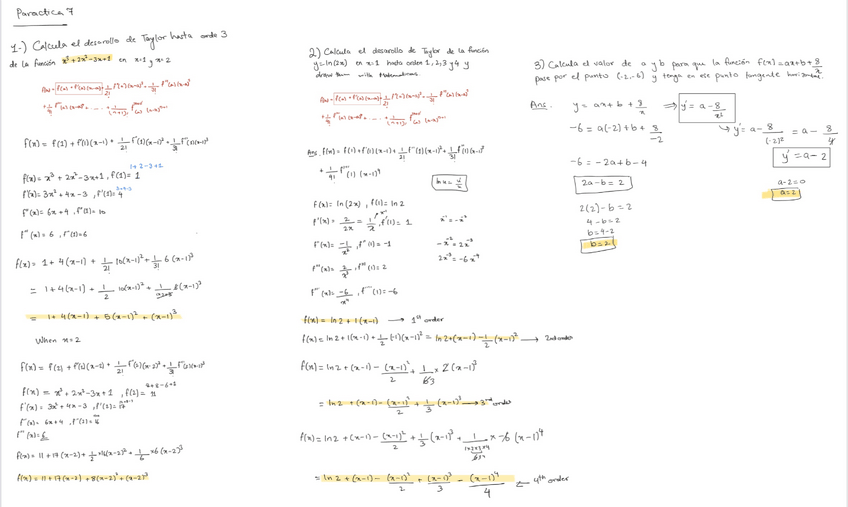 Paractica 7
1-) Calcula el desarollo de Taylor hasta orde 3
de la función x³+2x²-3x+1 en x=1 y x=2
f(x) = f(1) + f'(1)(x-1) + 1/2! f''(1)(x-1)² + 1/3! f'''(1)(x-1)³
1+2-3+1
f(x) = x³ + 2x² - 3x + 1 , f(1) = 1
f'(x) = 3x² + 4x - 3 , f'(1) = 4
f''(x) = 6x + 4 , f''(1) = 10
f'''(x) = 6 , f'''(1) = 6
f(x) = 1 + 4(x-1) + 1/2! 10(x-1)² + 1/3! 6(x-1)³
= 1 + 4(x-1) + 1/2 10(x-1)² +
= 1 + 4(x-1) + 5(x-1)² + (x-1)³
When x=2
8+8-6+1
f(x) = x³ + 2x² - 3x + 1 , f(2) = 11
f'(x) = 3x² + 4x - 3 , f'(2) = 17
f''(x) = 6x + 4 , f''(2) = 16
f'''(x) = 6
f(x) = 11 + 17(x-2) + 1/2 ×16(x-2)² + 1/6 ×6(x-2)³
f(x) = 11 + 17(x-2) + 8(x-2)² + (x-2)³
2) Calcula el desarollo de Taylor de la función
y=ln(2x) en x=1 hasta orden 1,2,3 y 4 y
draw them with Mathematica
Ans. f(x) = f(1) + f'(1)(x-1) + 1/2! f''(1)(x-1)² + 1/3! f'''(1)(x-1)³
+ 1/4! f''''(1) (x-1)⁴
ln u = u'/u
f(x) = ln(2x) , f(1) = ln 2
f'(x) = 2/2x = 1/x , f'(1) = 1
x⁻¹ = -x⁻²
f''(x) = -1/x² , f''(1) = -1
-x⁻² = 2x⁻³
2x⁻³ = -6x⁻⁴
f'''(x) = 2/x³ , f'''(1) = 2
f''''(x) = -6/x⁴ , f''''(1) = -6
f(x) = ln2 + 1(x-1) → 1st order
f(x) = ln2 + 1(x-1) + 1/2 (-1)(x-1)² = ln2 + (x-1) - 1/2 (x-1)² → 2nd order
f(x) = ln2 + (x-1) - (x-1)²/2 + 1/63 × 2(x-1)³
= ln2 + (x-1) - (x-1)²/2 + 1/3 (x-1)³ → 3rd order
f(x) = ln2 + (x-1) - (x-1)²/2 + 1/3 (x-1)³ + 1/1×2×3×4 × -6 (x-1)⁴
= ln2 + (x-1) - (x-1)²/2 + (x-1)³/3 - (x-1)⁴/4 ← 4th order
3) Calcula el valor de a y b para que la función f(x) = ax+b+8/x
pase por el punto (-2,-6) y tenga en ese punto tangente horizontal.
Ans. y = ax + b + 8/x ⇒ y' = a - 8/x²
-6 = a(-2) + b + 8/-2
y' = a - 8/(-2)² = a - 8/4
-6 = -2a + b - 4
y' = a - 2
2a - b = 2
a-2=0
a=2
2(2) - b = 2
4 - b = 2
b = 4-2
b = 2